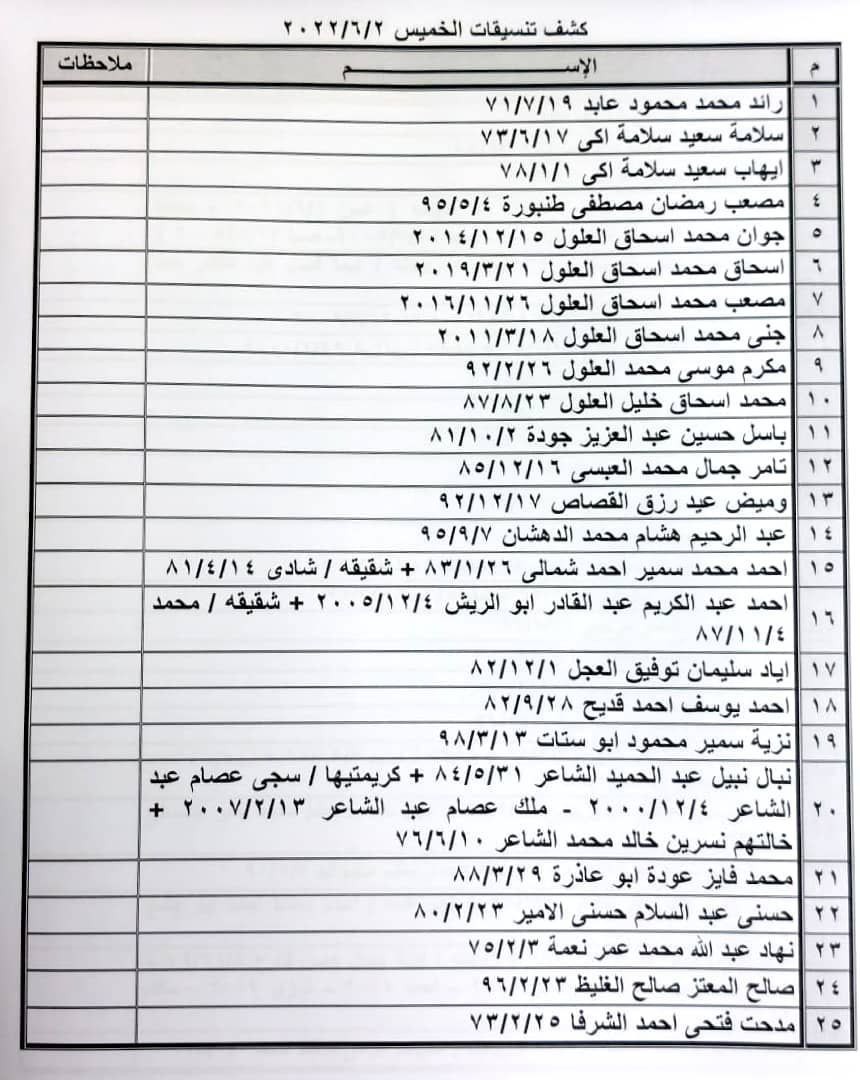 كشف تنسيقات الخميس ٢٠٢٢/٦/٢
م الإســـــــــم ملاحظات
١ رائد محمد محمود عابد ٧١/٧/١٩
٢ سلامة سعيد سلامة اكى ٧٣/٦/١٧
٣ ايهاب سعيد سلامة اكى ٧٨/١/١
٤ مصعب رمضان مصطفى طنبورة ٩٥/٥/٤
٥ جوان محمد اسحاق العلول ٢٠١٤/١٢/١٥
٦ اسحاق محمد اسحاق العلول ٢٠١٩/٣/٢١
٧ مصعب محمد اسحاق العلول ٢٠١٦/١١/٢٦
٨ جنى محمد اسحاق العلول ٢٠١١/٣/١٨
٩ مكرم موسى محمد العلول ٩٢/٢/٢٦
١٠ محمد اسحاق خليل العلول ٨٧/٨/٢٣
١١ باسل حسين عبد العزيز جودة ٨١/١٠/٢
١٢ تامر جمال محمد العبسى ٨٥/١٢/١٦
١٣ وميض عيد رزق القصاص ٩٢/١٢/١٧
١٤ عبد الرحيم هشام محمد الدهشان ٩٥/٩/٧
١٥ احمد محمد سمير احمد شمالى ٨٣/١/٢٦ + شقيقه / شادى ٨١/٤/١٤
١٦ احمد عبد الكريم عبد القادر ابو الريش ٢٠٠٥/١٢/٤ + شقيقه / محمد
٨٧/١١/٤
١٧ اياد سليمان توفيق العجل ٨٢/١٢/١
١٨ احمد يوسف احمد قديح ٨٢/٩/٢٨
١٩ نزية سمير محمود ابو ستات ٩٨/٣/١٣
٢٠ نبال نبيل عبد الحميد الشاعر ٨٤/٥/٣١ + كريمتيها / سجى عصام عبد
الشاعر ٢٠٠٠/١٢/٤ - ملك عصام عبد الشاعر ٢٠٠٧/٢/١٣ +
خالتهم نسرين خالد محمد الشاعر ٧٦/٦/١٠
٢١ محمد فايز عودة ابو عاذرة ٨٨/٣/٢٩
٢٢ حسنى عبد السلام حسنى الامير ٨٠/٢/٢٣
٢٣ نهاد عبد الله محمد عمر نعمة ٧٥/٢/٣
٢٤ صالح المعتز صالح الغليظ ٩٦/٢/٢٣
٢٥ مدحت فتحى احمد الشرفا ٧٣/٢/٢٥